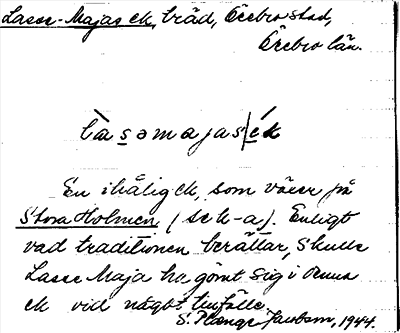 Lasse-Majas ek, träd, Örebro stad,
Örebro län.
làsəmajas|ék
En ihålig ek, som växer på
Stora Holmen (se k-a). Enligt
vad traditionen berättar, skulle
Lasse Maja ha gömt sig i denna
ek vid något tillfälle.
S. Plænge Jacobson, 1944.